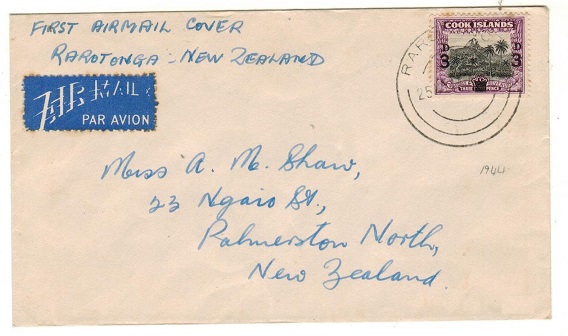 FIRST AIRMAIL COVER
RAROTONGA - NEW ZEALAND
AIR MAIL
PAR AVION
COOK ISLANDS
3 3
RAR
25
Miss A. M. Shaw,
23 Ngaio St.,
Palmerston North,
New Zealand.
1944